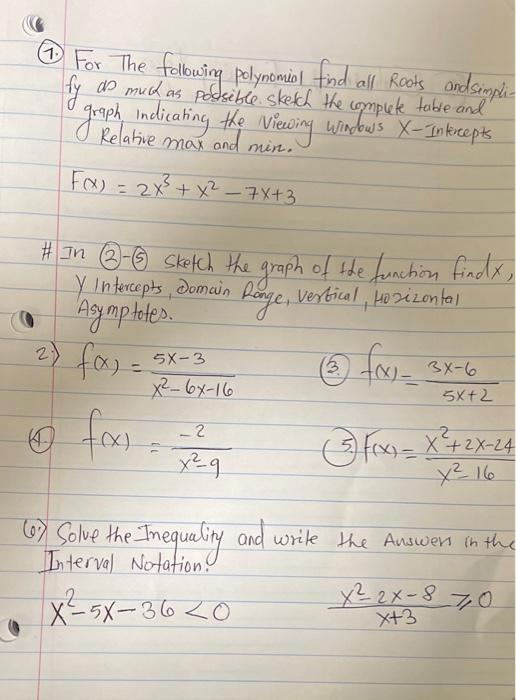 1. For The following polynomial find all Roots and simpli-
fy as much as possible. sketch the complete table and
graph, indicating the Viewing Windows X-Intercepts
Relative max and min.
F(x) = 2x³ + x² - 7x+3
# In ②-⑤ sketch the graph of the function find x,
Y Intercepts, Domain Range, Vertical, Horizontal
Asymptotes.
2.) f(x) = 5x-3 / x²-6x-16
3. f(x) = 3x-6 / 5x+2
4. f(x) = -2 / x²-9
5. F(x) = x²+2x-24 / x²-16
6.) Solve the Inequality and write the Answers in the
Interval Notation.
x²-5x-36 < 0
x²-2x-8 / x+3 ⩾ 0